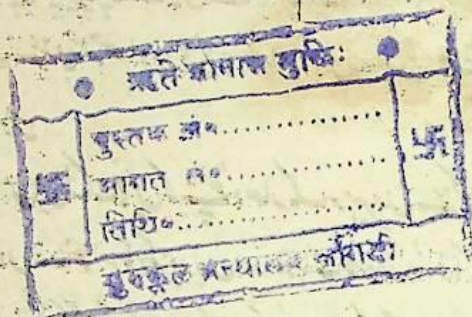 ऋते ज्ञानान्न मुक्तिः
पुस्तक सं०
आगत सं०
तिथि०
गुरुकुल ग्रन्थालय काँगड़ी